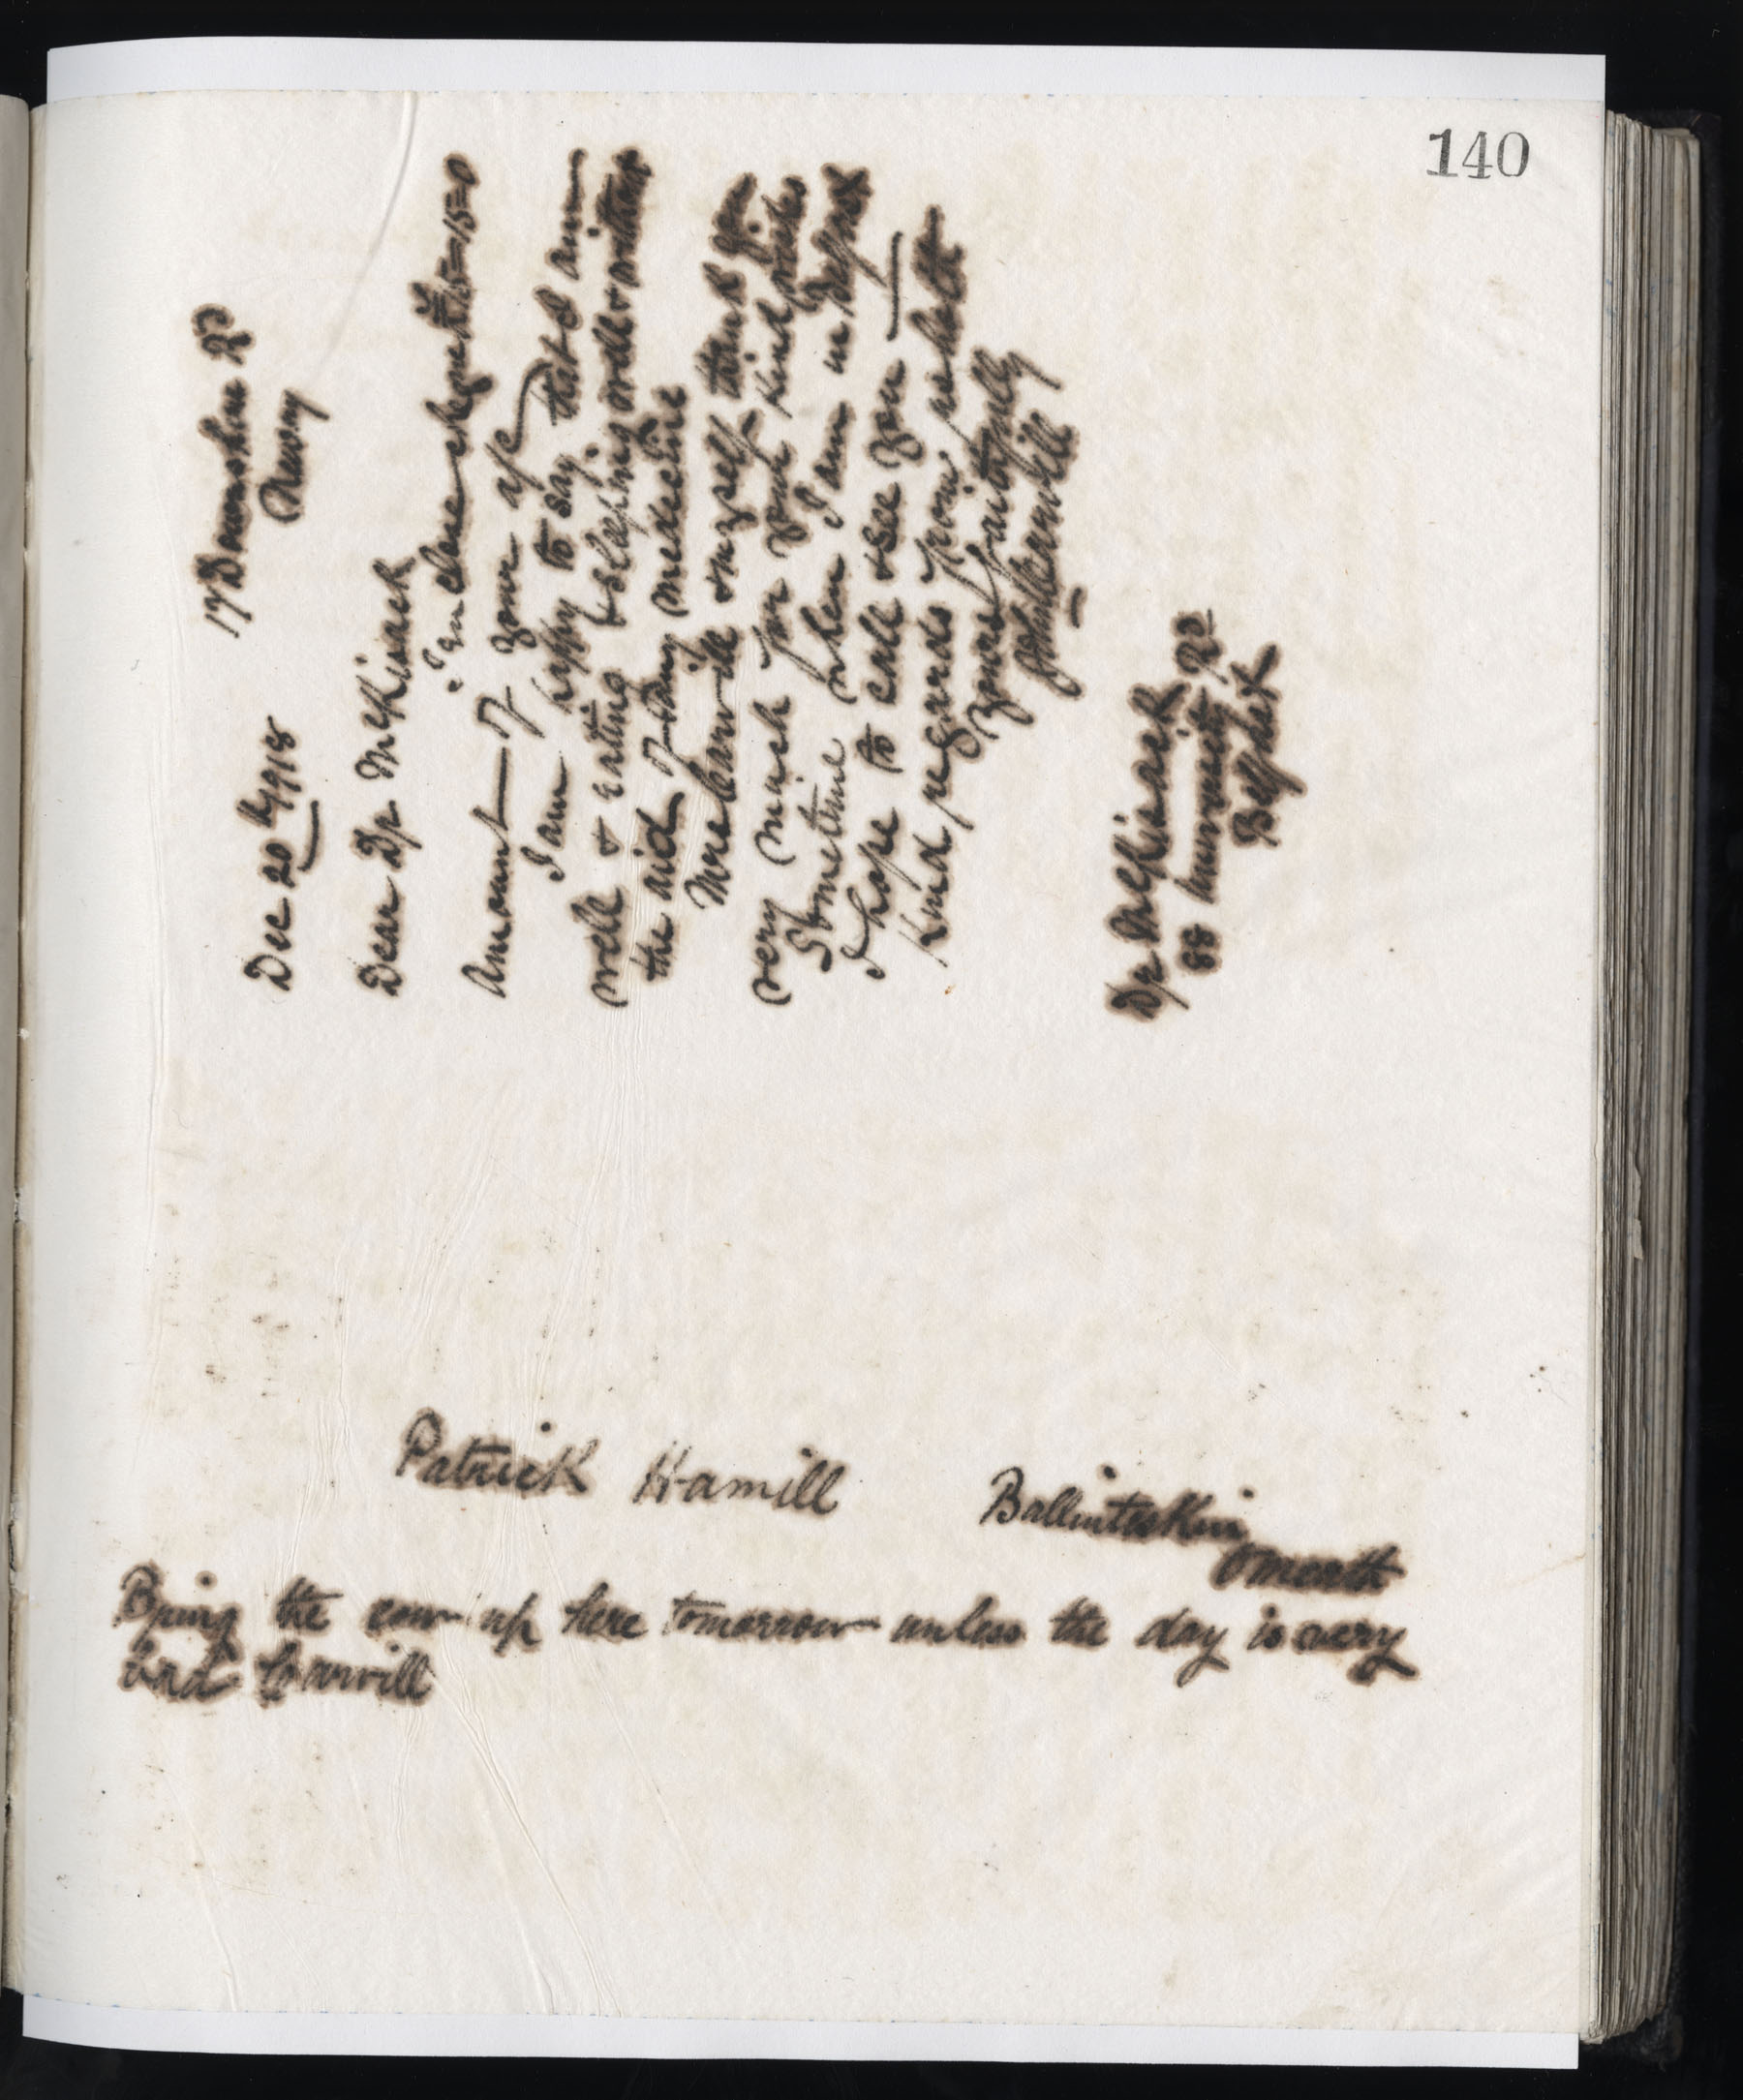 140
17 Downshire Rd
Newry
Dec 20th 1918
Dear Dr McKisack
I enclose cheque £15=15=0
Amount of your a/c
I am happy to say that I am
well & eating & sleeping well & without
the aid of any medecine
Mrs Carvill & myself thank you
very much for your kind
Sometime when I am in Belfast
I hope to call & see you
Kind regards from
yours faithfully
John Carvill
Dr McKisack
88 University Rd
Belfast
Patrick Hamill Ballinteskin
Omeath
Bring the cow up here tomorrow unless the day is very
bad Carvill